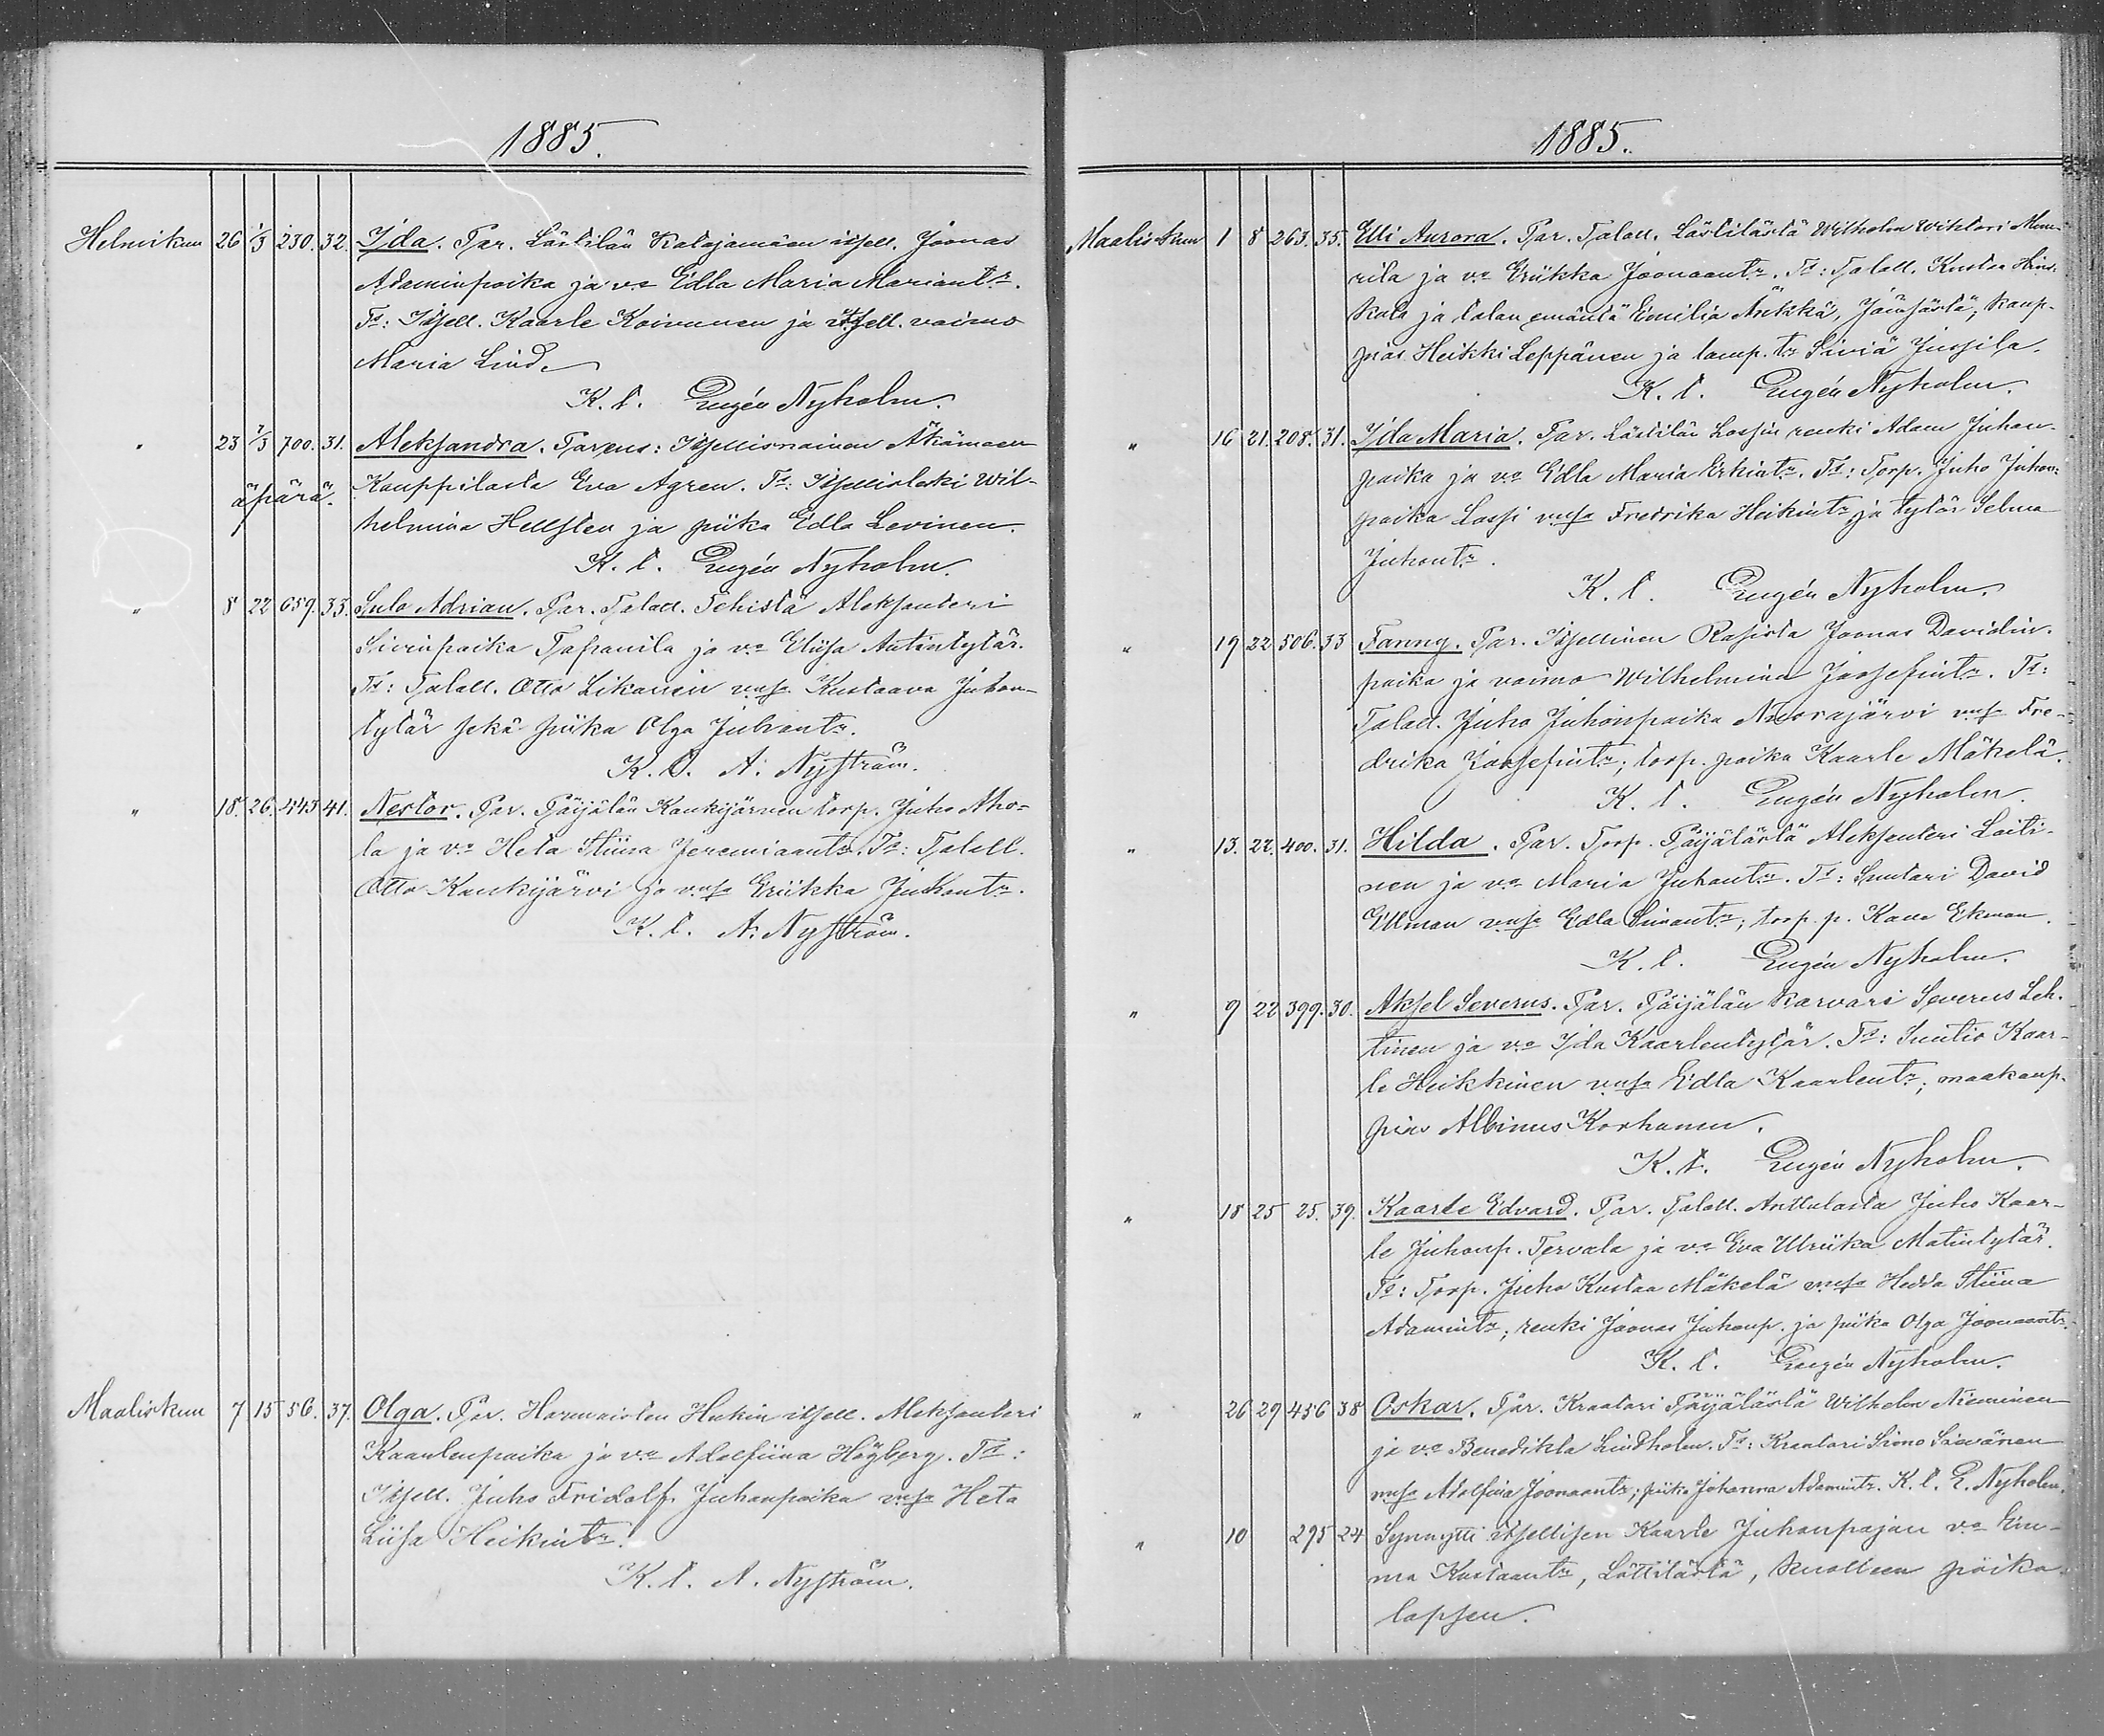 1885.
Helmikun 26 1/3 230. 32. Ida. Par. Lästilän Katajamäen itsell. Joonas
Adaminpoika ja vo Edla Maria Mariantr.
Td: Itsell. Kaarle Koivunen ja itsell. vaimo
Maria Lind.
K. t. Eugén Nyholm.
" 23 1/3 700. 31. Aleksandra. Parens: Itsellisnainen
äpärä. Kauppilasta Eva Agren. Td: Itsellisleski Wil-
helmina Hellsten ja piika Edla Levinen.
K. t. Eugén Nyholm.
" 8 22 659. 33. Sulo Adrian. Par. Talall. Tehistä Aleksanteri
Siminpoika Tapanila ja vo Eliisa Antintytär.
Td: Talall. Otto Likanen vmsa Kustaava Juhon-
tytär sekä piika Olga Juhontr.
K. t. A. Nyström.
" 18. 26. 443 41. Nestor. Par. Päijälän Kankijärven torp. Juho Aho-
la ja vo Heta Stiina Jeremiaantr. Td: Talall.
Otto Kankijärvi ja vmsa Eriikka Juhontr.
K. t. A. Nyström.
Maaliskun 7 15 56. 37. Olga. Par. Harmaisten Heikin itsell. Aleksanteri
Kaarlenpoika ja vo Adolfiina Högberg. Td:
Itsell. Juho Fridolf Juhanpoika vmsa Heta
Liisa Heikintr.
K. t. A. Nyström.
1885.
Maaliskun 1 8 263. 35. Elli Aurora. Par. Talall. Lästilästä Wilhelm Wihtori
ja vo Eriikka Joonaantr. Td: Talall. Kustaa
ja talan emäntä Emilia Jämsästä; kaup-
pias Heikki Leppänen ja lamp. tr Siviä Jussila.
K. t. Eugén Nyholm.
" 16 21. 208. 31. Ida Maria. Par. Lästilän Lassin renki Adam Juhan-
poika ja vo Edla Maria Erkintr. Td: Torp. Juho Juhon-
poika Lassi vmsa Fredrika Heikintr ja tytär Selma
Juhontr.
K. t. Eugén Nyholm.
" 19 22 506. 33 Fanny. Par. Itsellinen Rasista Joonas Davidin-
poika ja vaimo Wilhelmina Joosefintr. Td:
Talall. Juho Juhonpoika Nuorajärvi vmsa Fre-
drika Joosefintr; torp. poika Kaarle Mäkelä.
K. t. Eugén Nyholm.
" 13. 22. 400. 31. Hilda. Par. Torp. Päijälästä Aleksanteri Laiti-
nen ja vo Maria Juhontr. Td: Suutari David
Ellman vmsa Edla Simontr; torp. p. Kalle Ekman.
K. t. Eugén Nyholm.
" 9 22 399. 30. Aksel Severus. Par. Päijälän karvari Severus Leh-
tinen ja vo Ida Kaarlentytär. Td: Suntio Kaar-
le Heikkinen vmsa Edla Kaarlentr; maakaup-
pias Albinus Korhonen.
K. t. Eugén Nyholm.
" 18 25 25. 39. Kaarle Edvard. Par. Talall. Anttulasta Juho Kaar-
le Juhonp. Tervala ja vo Eva Ulriika Matintytär.
Td: Torp. Juho Kustaa Mäkelä vmsa Hedda Stiina
Adamintr; renki Joonas Juhonp. ja piika Olga Joonaantr.
K. t. Eugén Nyholm.
" 26 29 456 38 Oskar. Par. Kraatari Päijälästä Wilhelm Nieminen
ja vo Benedikta Lindholm. Td: Kraatari Simo Säwänen
vmsa Adolfiia Joonaantr; piika Johanna Adamintr. K. t. E. Nyholm.
" 10 295 24 Synnytti itsellisen Kaarle Juhanpojan vo Em-
ma Kustaantr, Lättilästä, kuolleen poika
lapsen.